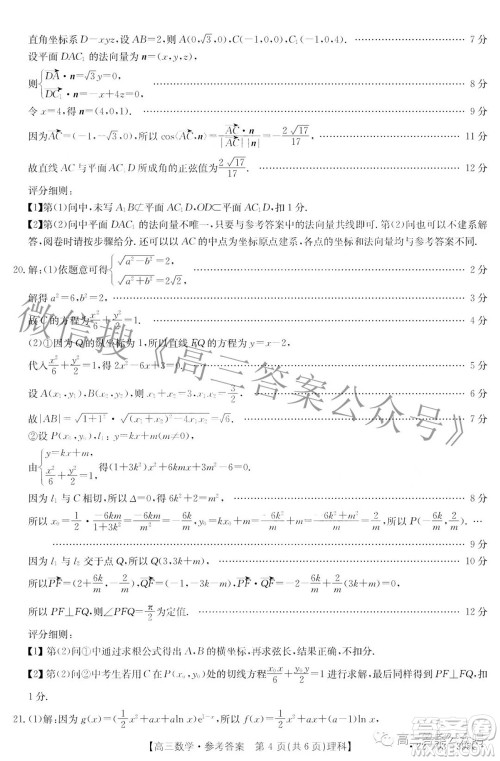 直角坐标系 D—xyz,设 AB=2,则 A(0,√3,0),C(-1,0,0),C₁(-1,0,4). 7 分
设平面 DAC₁ 的法向量为 n=(x,y,z),
则{DA·n=√3y=0, DC₁·n=-x+4z=0. 8 分
令 x=4,得 n=(4,0,1). 9 分
因为AC=(-1,-√3,0),所以 cos⟨AC,n⟩=AC·n/|AC||n|=-2√17/17. 11 分
故直线 AC 与平面 AC₁D 所成角的正弦值为2√17/17. 12 分
评分细则:
【1】第(1)问中,未写 A₁B⊄平面 AC₁D,OD⊂平面 AC₁D,扣 1 分.
【2】第(2)问中平面 DAC₁ 的法向量不唯一,只要与参考答案中的法向量共线即可.第(2)问也可以不建系解
答,阅卷时请按步骤给分.若将 AC 的中点为坐标原点建系,各点的坐标和法向量均与参考答案一致.
20. 解:(1)依题意可得{√a²-b²=2, √a²+b²=2√2, 2 分
解得 a²=6,b²=2, 3 分
故 C 的方程为x²/6+y²/2=1. 4 分
(2)①因为 Q 的纵坐标为 1,所以直线 FQ 的方程为 y=x-2,
代入x²/6+y²/2=1,得 2x²-6x+3=0. 5 分
设 A(x₁,y₁),B(x₂,y₂),则 x₁+x₂=3,x₁x₂=3/2, 6 分
故|AB|=√1+1²·√(x₁+x₂)²-4x₁x₂=√6. 7 分
②设 P(x₀,y₀),l₁:y=kx+m(m≠0),
由{y=kx+m, x²/6+y²/2=1,得(1+3k²)x²+6kmx+3m²-6=0.
因为 l₁ 与 C 相切,所以 Δ=0,得 6k²+2=m². 8 分
所以 x₀=1/2·-6km/1+3k²=-6km/m²=-6k/m,y₀=kx₀+m=-6k²/m+m=m²-6k²/m=2/m.
9 分
因为 l₁ 与 l₂ 交于点 Q,所以 Q(3,3k+m), 10 分
所以PF=(2+6k/m,-2/m),QF=(-1,-3k-m),则PF·QF=-2-6k/m+6k/m+2=0,
所以 PF⊥QF,∠PFQ=π/2为定值. 12 分
评分细则:
【1】第(2)问①中通过求根公式得出 A,B 的横坐标,再求弦长,结果正确,不扣分.
【2】第(2)问②中考生若用 C 在 P(x₀,y₀)处的切线方程为x₀x/6+y₀y/2=1,从而证明 PF⊥FQ,扣
1 分.
21. (1)解:因为 g(x)=(1/2x²+ax+aln x)e¹⁻ˣ,所以 f(x)=1/2x²+ax+aln x,
【高三数学·参考答案 第 4 页(共 6 页)理科】
微信搜《高三答案公众号》